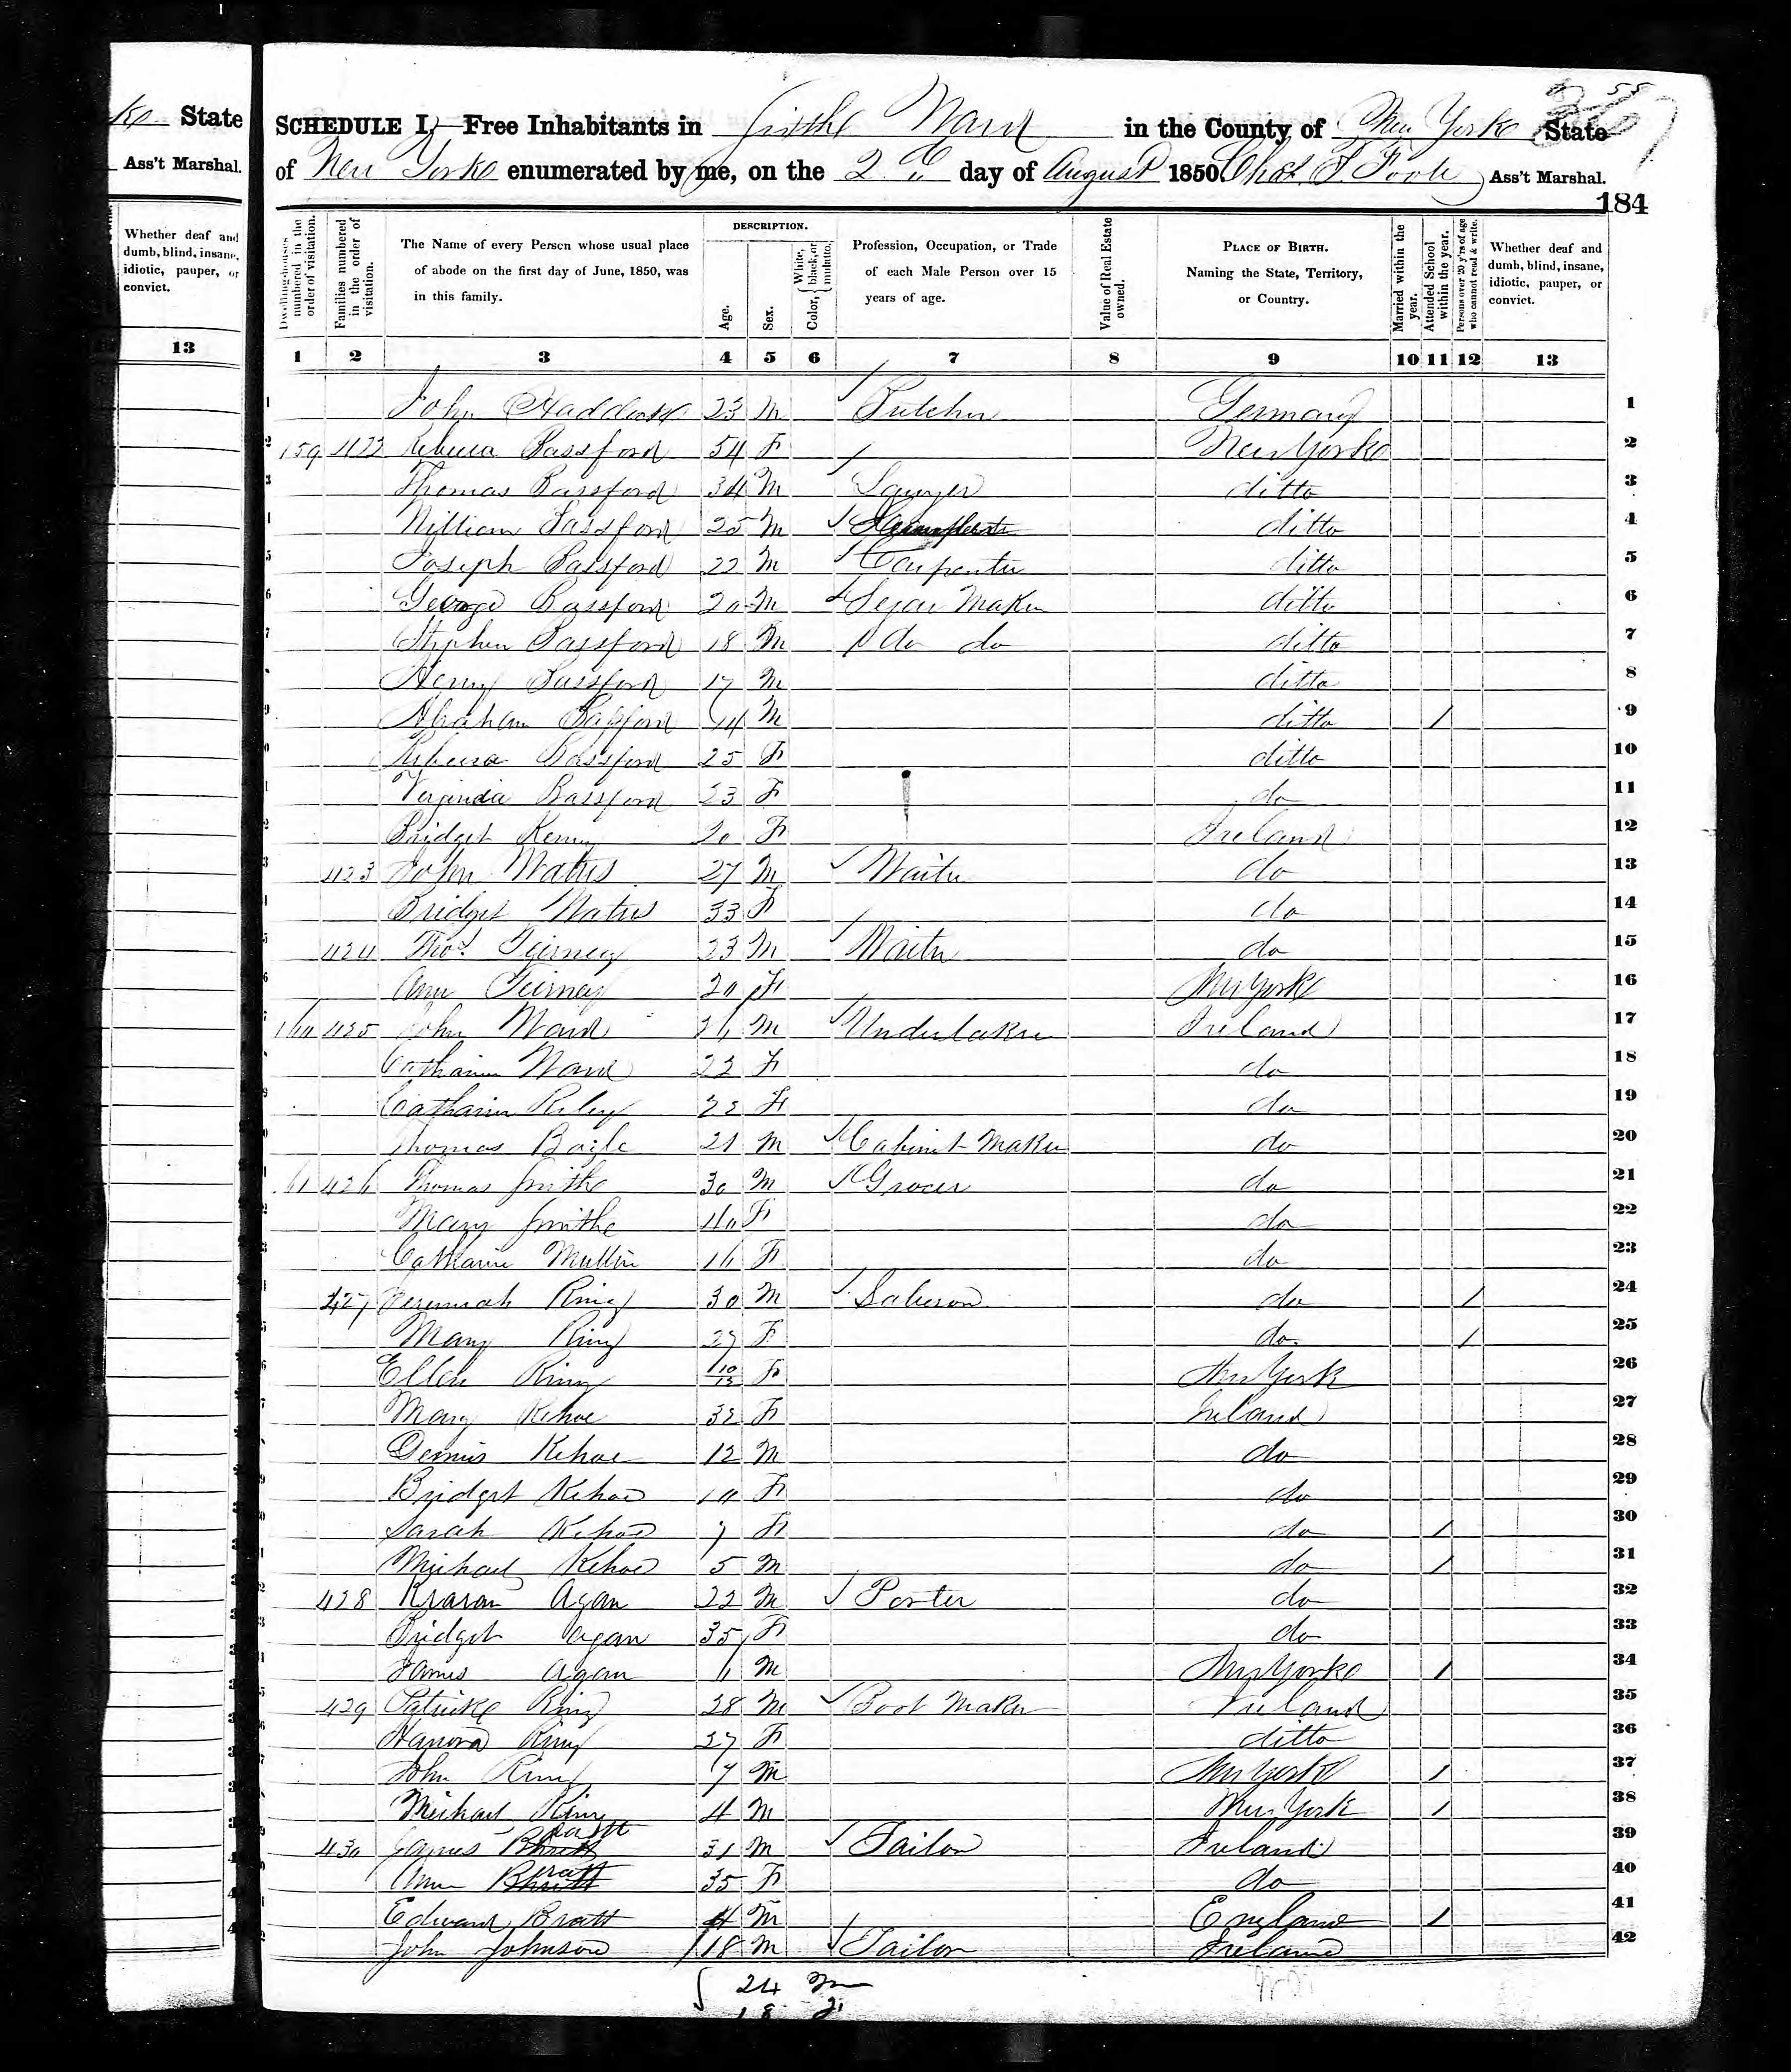 State
Ass't Marshal.
Whether deaf and
dumb, blind, insane,
idiotic, pauper, or
convict.
13
SCHEDULE I, Free Inhabitants in Ward in the County of New York State
of New York enumerated by me, on the 2 day of August 1850. Chas. Ass't Marshal.
184
Dwelling-houses numbered in the order of visitation.
Families numbered in the order of visitation.
The Name of every Person whose usual place of abode on the first day of June, 1850, was in this family.
DESCRIPTION.
Age.
Sex.
Color, White, black, or mulatto.
Profession, Occupation, or Trade of each Male Person over 15 years of age.
Value of Real Estate owned.
PLACE OF BIRTH. Naming the State, Territory, or Country.
Married within the year.
Attended School within the year.
Persons over 20 y'rs of age who cannot read & write.
Whether deaf and dumb, blind, insane, idiotic, pauper, or convict.
1 2 3 4 5 6 7 8 9 10 11 12 13
John 23 M Butcher Germany 1
159 422 Rebecca Bassford 54 F New York 2
Thomas Bassford 34 M Lawyer ditto 3
William Bassford 25 M ditto 4
Joseph Bassford 22 M Carpenter ditto 5
George Bassford 20 M Segar Maker ditto 6
Stephen Bassford 18 M do do ditto 7
Henry Bassford 17 M ditto 8
Abraham Bassford 14 M ditto / 9
Rebecca Bassford 25 F ditto 10
Virginia Bassford 23 F do 11
Bridget 20 F Ireland 12
423 John Waters 27 M Waiter do 13
Bridget Waters 33 F do 14
424 Thos. Teirney 23 M Waiter do 15
Ann Teirney 20 F New York 16
160 425 John Ward M Undertaker Ireland 17
Catharine Ward 22 F do 18
Catharine Riley 22 F do 19
Thomas 21 M Cabinet Maker do 20
161 426 Thomas Smith 30 M Grocer do 21
Mary Smith F do 22
Catharine Mullin 16 F do 23
427 Jeremiah Ring 30 M do / 24
Mary Ring 27 F do / 25
Ellen Ring 10/12 F New York 26
Mary Kehoe 32 F Ireland 27
Dennis Kehoe 12 M do 28
Bridget Kehoe 10 F do 29
Sarah Kehoe 7 F do / 30
Michael Kehoe 5 M do / 31
428 Agan 22 M Porter do 32
Bridget Agan 35 F do 33
James Agan 6 M New York / 34
429 Patrick Ring 28 M Boot Maker Ireland 35
Hanora Ring 27 F ditto 36
John Ring 7 M New York / 37
Michael Ring 4 M New York / 38
430 James Bratt 31 M Tailor Ireland 39
Ann Bratt 35 F do 40
Edward Bratt 4 M England / 41
John Johnson 18 M Tailor Ireland 42
24 M
18 F